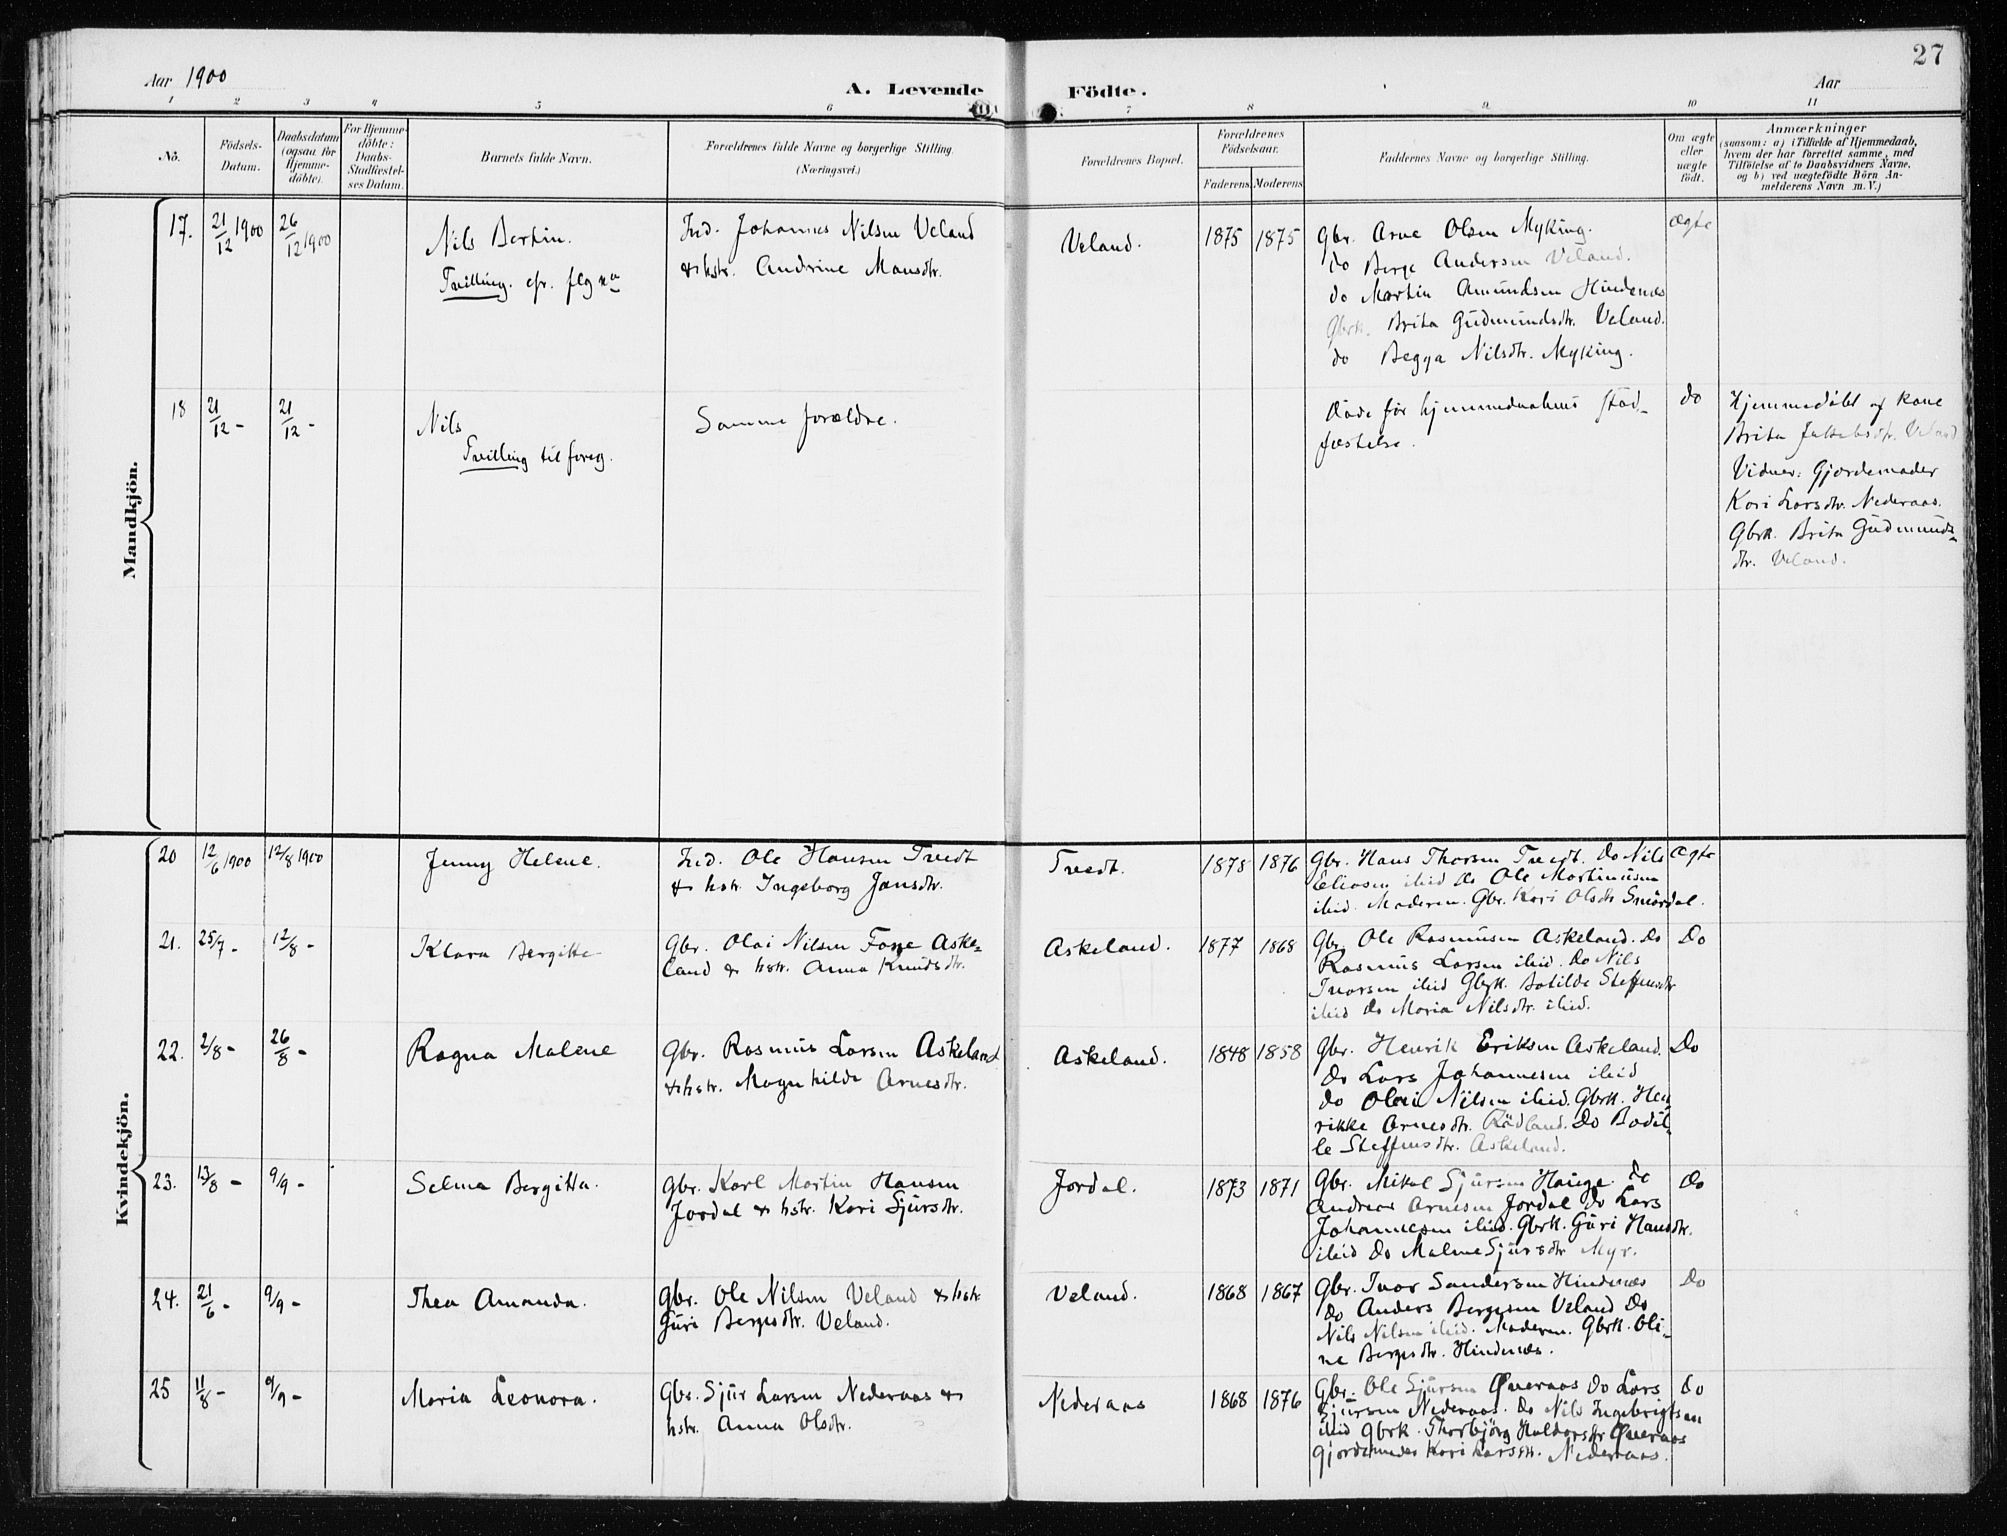 27
Aar 1900
A. Levende Födte.
Aar
1 2 3 4 5 6 7 8 9 10 11
No.
Födsels-
Datum.
Daabsdatum
(ogsaa for
Hjemme-
döbte).
For Hjemme-
döbte:
Daabs-
Stadfæstel-
ses Datum.
Barnets fulde Navn.
Forældrenes fulde Navne og borgerlige Stilling.
(Næringsvei.)
Forældrenes Bopæl.
Forældrenes
Födselsaar.
Faderens Moderens
Faddernes Navne og borgerlige Stilling.
Om ægte
eller
uægte
födt.
Anmærkninger
(saasom: a) i Tilfælde af Hjemmedaab,
hvem der har forrettet samme, med
Tilföielse af to Daabsvidners Navne,
og b) ved uægtefödte Börn An-
melderens Navn m. V.)
Mandkjön.
17.
21/12 1900
26/12 1900
Nils Bertin.
Tvilling. cfr. flg no
Ind. Johannes Nilsen Veland
& hstr. Andrine Monsdtr.
Veland.
1875 1875
Gbr. Arne Olsen Myking.
do Berge Andersen Veland.
do Martin Amundsen Hindenæs
Gbrk. Brita Gudmundsdtr. Veland.
do Begga Nilsdtr. Myking.
ægte
18
21/12 -
21/12 -
Nils
Tvilling til foreg.
Samme forældre.
Døde før hjemmedaabens stad-
fæstelse.
do
Hjemmedöbt af kone
Brita Jakobsdtr. Veland
Vidner: Gjordemoder
Kari Larsdtr. Nederaas.
Gbrk. Brita Gudmunds-
dtr. Veland.
Kvindekjön.
20
12/6 1900
12/8 1900
Jenny Helene.
Ind. Ole Hansen Tvedt
& hstr. Ingeborg Jansdtr.
Tvedt.
1878 1876
Gbr. Hans Thorsen Tvedt. Do Nils
Eliasen ibid Do Ole Martinusen
ibid. Moderen. Gbr. Kari Olsdtr Smördal.
Ægte
21.
25/7 -
12/8 -
Klara Bergitte
Gbr. Olai Nilsen Fosse Aske-
land & hstr. Anna Knudsdtr.
Askeland.
1877 1868
Gbr. Ole Rasmusen Askeland. Do
Rasmus Larsen ibid. Do Nils
Ivarsen ibid Gbrk. Botilde Steffensdtr
ibid Do Maria Nilsdtr. ibid.
Do
22.
2/8 -
26/8 -
Ragna Malene
Gbr. Rasmus Larsen Askeland
& hstr. Magnhilde Arnesdtr.
Askeland.
1848 1858
Gbr. Henrik Eriksen Askeland.
Do Lars Johannesen ibid
Do Olai Nilsen ibid. Gbrk. Hen
rikke Arnesdtr. Rödland. Do Bodil-
le Steffensdtr. Askeland.
Do
23.
13/8 -
9/9 -
Selma Bergitta.
Gbr. Karl Martin Hansen
Jordal & hstr. Kari Sjursdtr.
Jordal.
1873 1871
Gbr. Mikal Sjursen Hauge do
Andreas Arnesen Jordal Do Lars
Johannesen ibid. Gbrk. Guri Hansdtr.
ibid Do Malene Sjursdtr Myr.
Do
24.
21/6 -
9/9 -
Thea Amanda.
Gbr. Ole Nilsen Veland & hstr
Guri Bergesdtr. Veland.
Veland.
1868 1867
Gbr. Ivar Sandersen Hindenæs
Do Anders Bergesen Veland Do
Nils Nilsen ibid. Moderen. Gbrk. Oli-
ne Bergesdtr. Hindenæs.
Do
25
11/8 -
9/9 -
Maria Leonora.
Gbr. Sjur Larsen Nederaas &
hstr. Anna Olsdtr.
Nederaas
1868 1876
Gbr. Ole Sjursen Øveraas Do Lars
Sjursen Nederaas. Do Nils Ingebrigtsen
ibid Gbrk. Thorbjörg Haldorsdtr Øveraas
Gjordemoder Kari Larsdtr. Nederaas.
Do